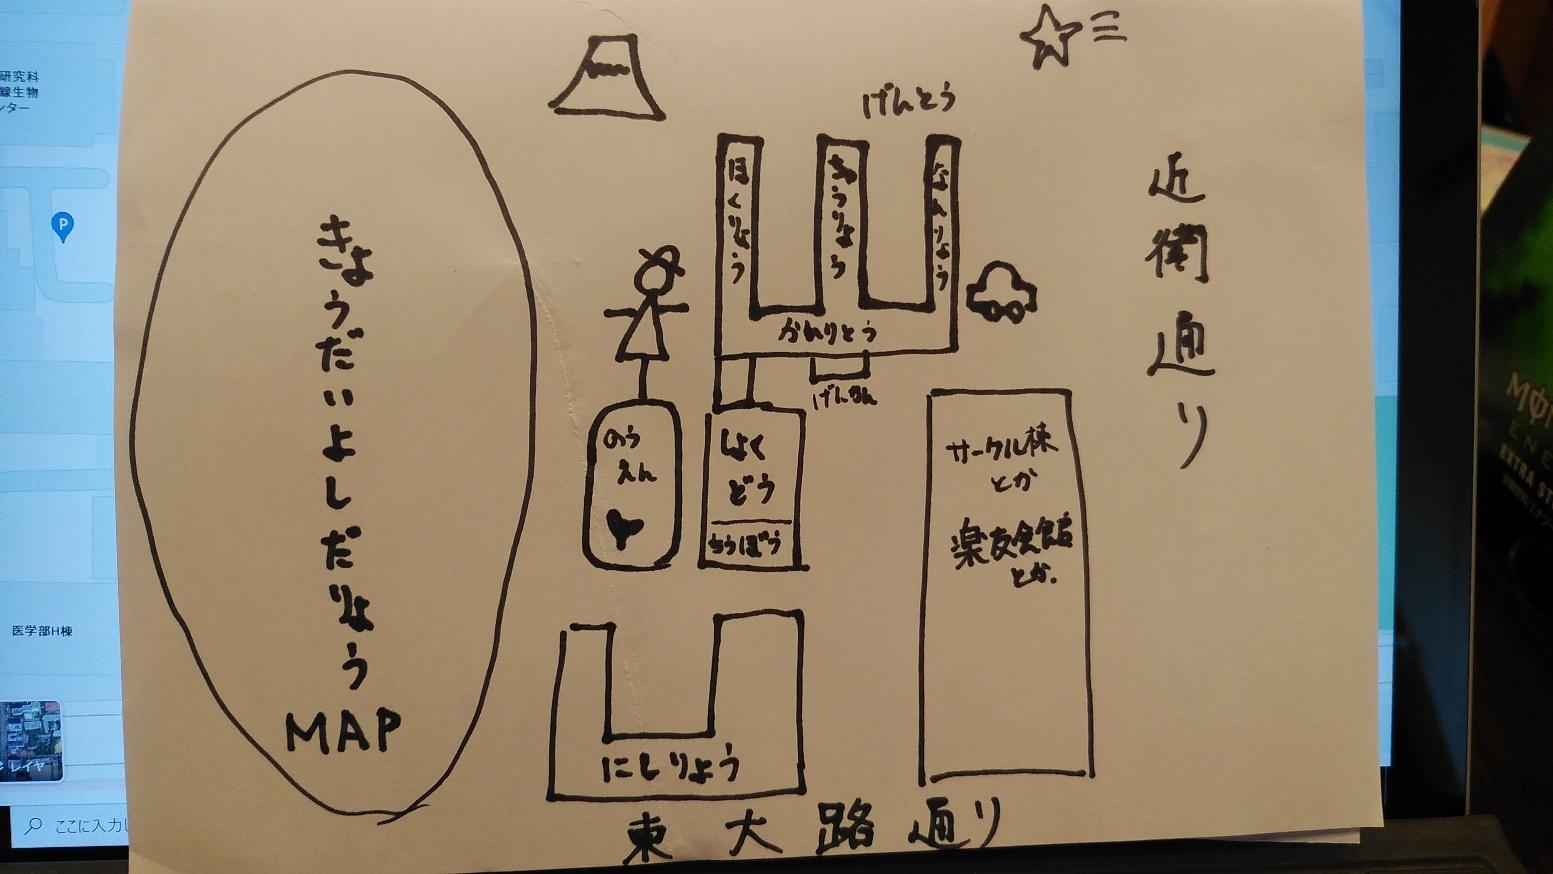 きょうだいよしだりょう
MAP
げんとう
ほくりょう
ちゅうりょう
なんりょう
かんりとう
げんかん
近衛通り
のう
えん
しょく
どう
ちゅうぼう
サークル棟
とか
楽友会館
とか.
にしりょう
東大路通り
研究科
線生物
ンター
P
医学部H棟
レイヤ
ここに入力し